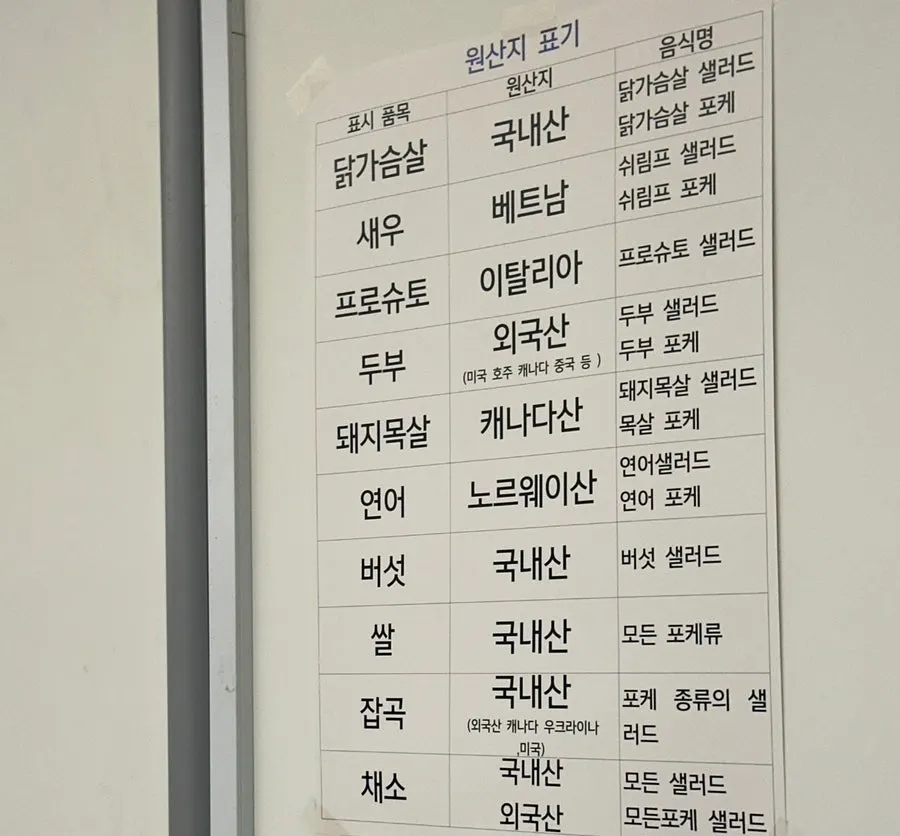 원산지 표기
표시 품목 원산지 음식명
닭가슴살 국내산 닭가슴살 샐러드
닭가슴살 포케
새우 베트남 쉬림프 샐러드
쉬림프 포케
프로슈토 이탈리아 프로슈토 샐러드
두부 외국산 두부 샐러드
(미국 호주 캐나다 중국 등 ) 두부 포케
돼지목살 캐나다산 돼지목살 샐러드
목살 포케
연어 노르웨이산 연어샐러드
연어 포케
버섯 국내산 버섯 샐러드
쌀 국내산 모든 포케류
잡곡 국내산 포케 종류의 샐
(외국산 캐나다 우크라이나 러드
,미국)
채소 국내산 모든 샐러드
외국산 모든포케 샐러드